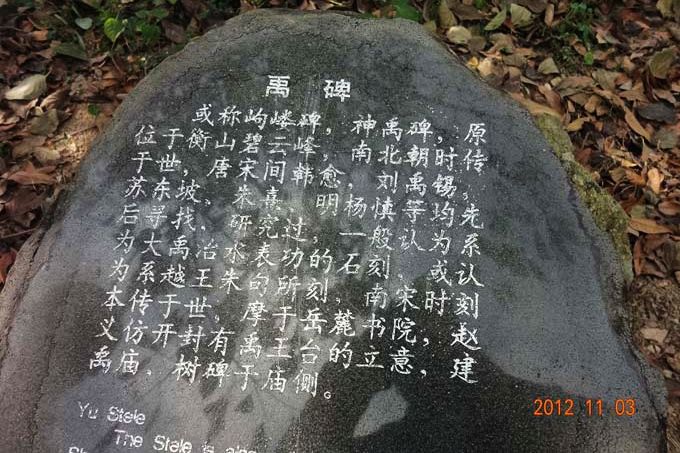 禹 碑
或称岣嵝碑，神禹碑，原
位于衡山碧云峰，南北朝时传
于世，唐宋间韩愈、刘禹锡、
苏东坡、朱熹、明杨慎等均先
后寻找、研究过，一般认为系
为大禹治水表功的石刻，或认
为系越王朱句所刻，南宋时刻
本传于世，摩于岳麓书院，赵
义仿开封有禹王台的立意，建
禹庙，树碑于庙侧。
Yu Stele
The Stele is also
2012 11 03